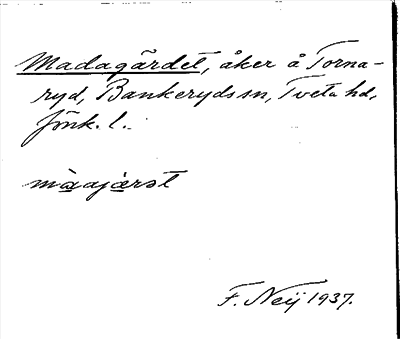 Madagärdet, åker å Torna-
ryd, Bankeryds sn, Tveta hd,
Jönk. l.
màajæ̀rət
F. Neij 1937.